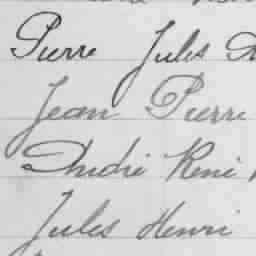 Pierre Jules
Jean Pierre
André René
Jules Henri